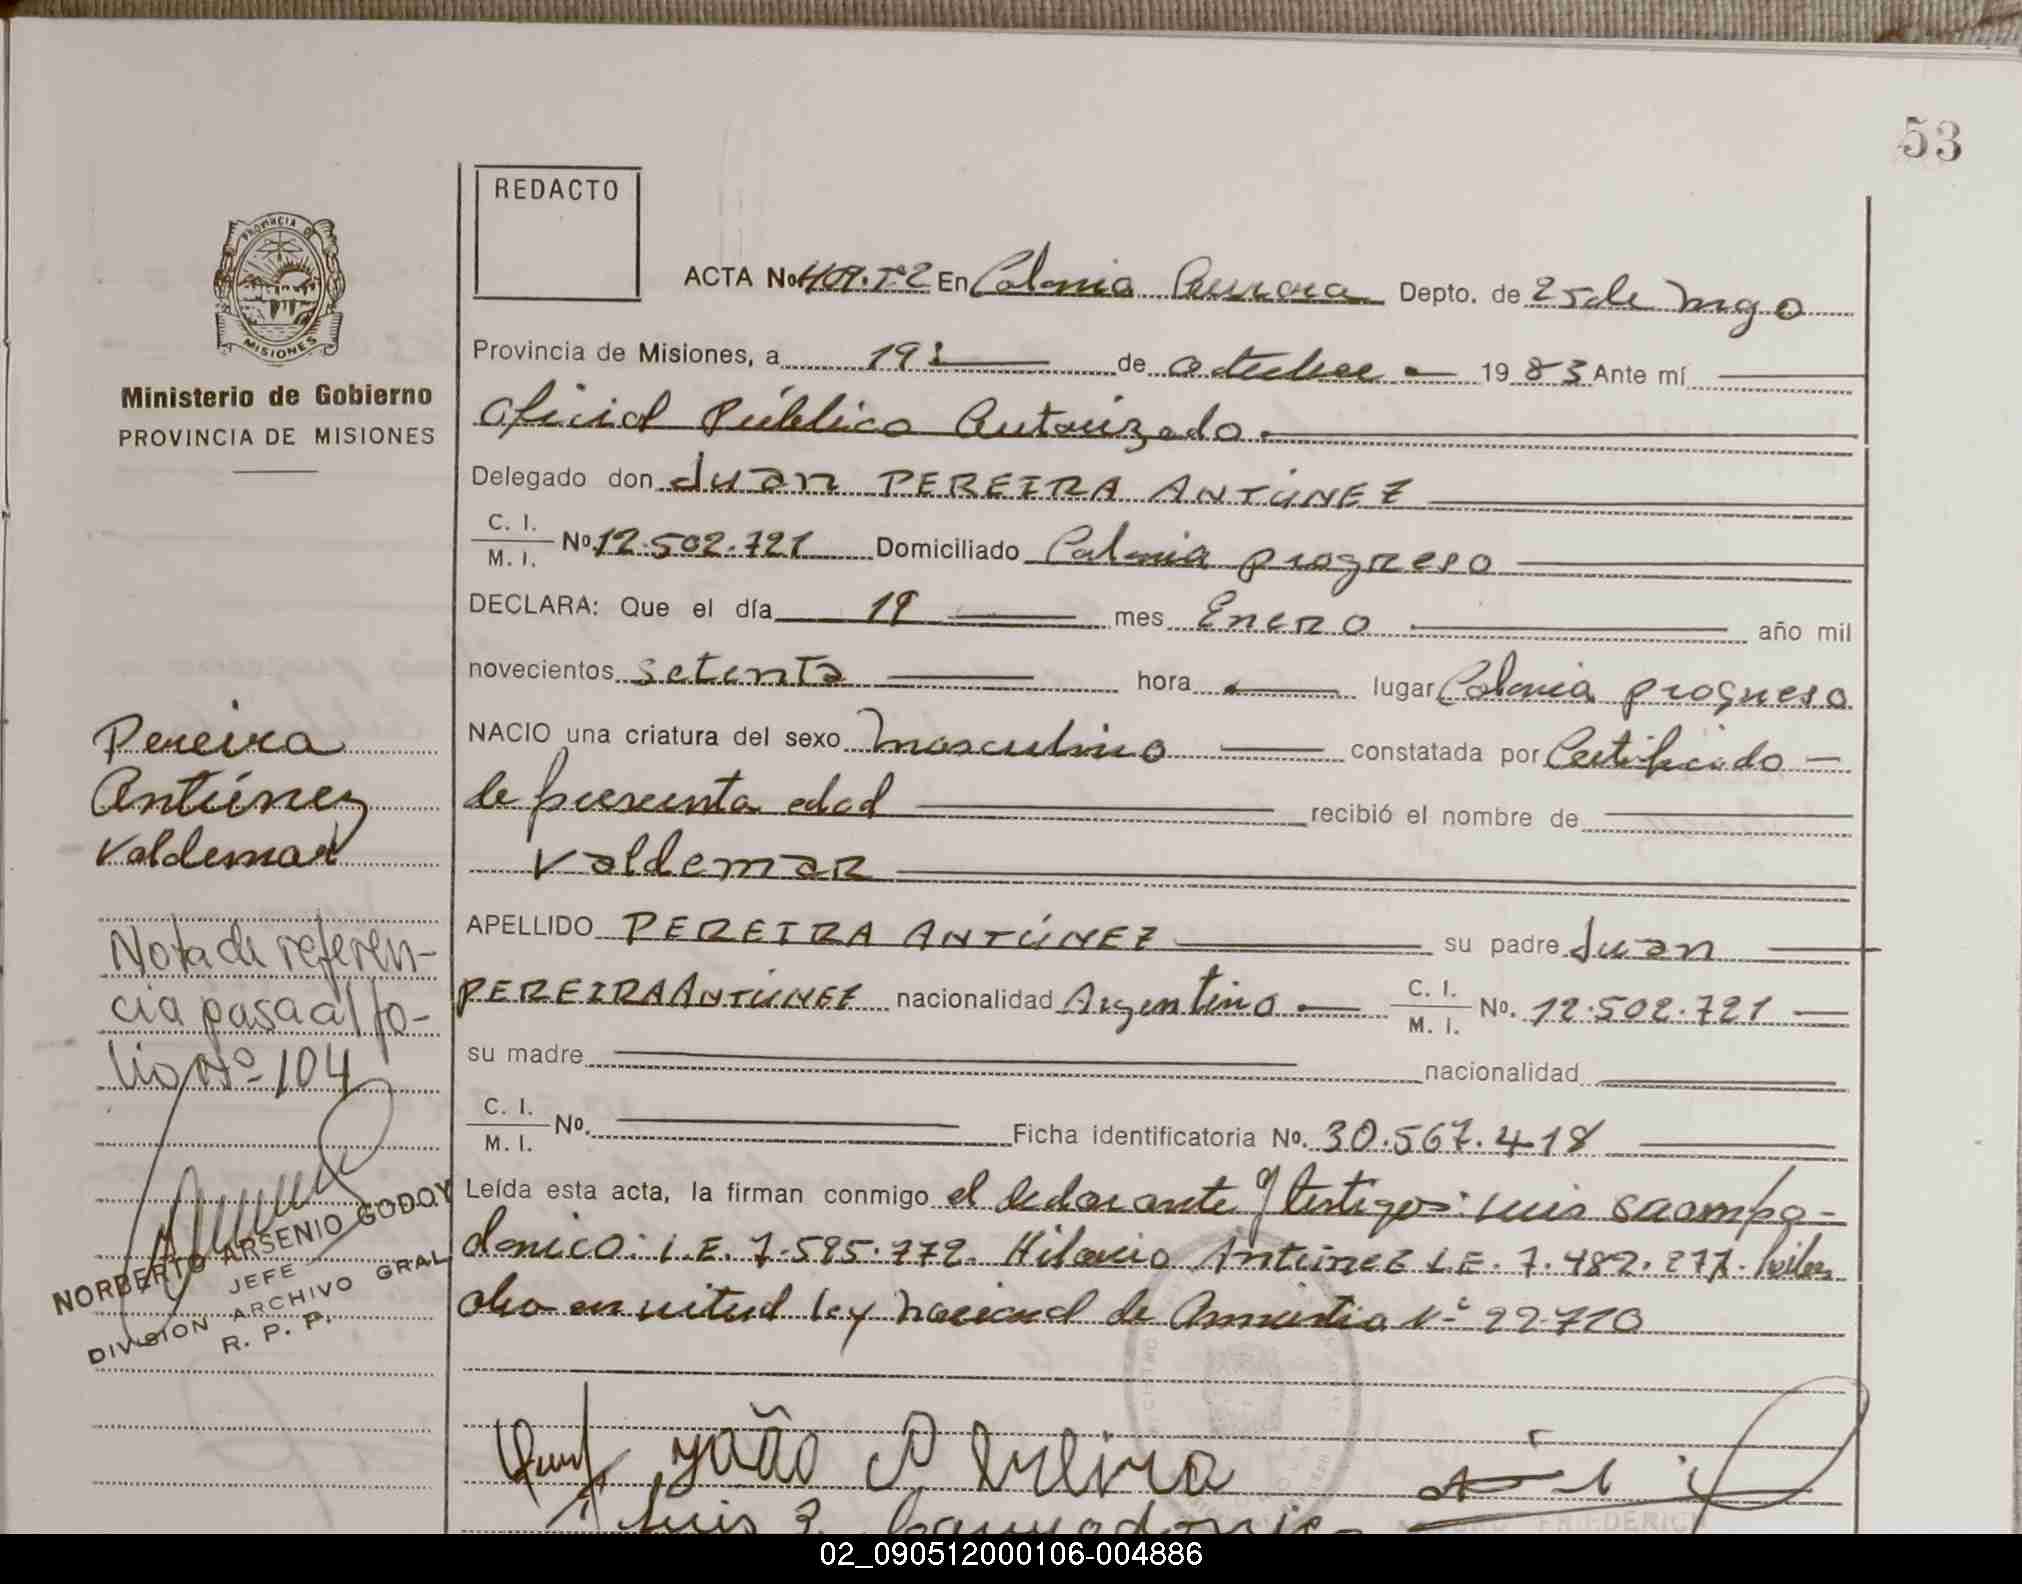 53
REDACTO
PROVINCIA D
MISIONES
Ministerio de Gobierno
PROVINCIA DE MISIONES
ACTA No 409.Tº2 En Colonia Aurora Depto. de 25 de Mayo
Provincia de Misiones, a 19: de octubre 1983 Ante mí
Oficial Público Autorizado.
Delegado don Juan PEREIRA ANTÚNEZ
C. I.
M. I. No. 12.502.721 Domiciliado Colonia progreso
DECLARA: Que el día 19 mes Enero año mil
novecientos setenta hora lugar Colonia progreso
NACIO una criatura del sexo masculino constatada por Certificado
de presunta edad recibió el nombre de
Valdemar
APELLIDO PEREIRA ANTÚNEZ su padre Juan
PEREIRA ANTÚNEZ nacionalidad Argentino C. I. M. I. No. 12.502.721
su madre nacionalidad
C. I.
M. I. No. Ficha identificatoria No. 30.567.418
Leída esta acta, la firman conmigo el declarante y testigos: Luis Saompo-
donico: L.E. 7.595.772. Hilario Antúnez L.E. 7.482.277.
en vitud ley nacional de Amnistia Nº 22.710
João Pereira
Luis
FRIEDERICH
Pereira
Antúnez
Valdemar
Nota de referen-
cia pasa al fo-
lio Nº 104
NORBERTO ARSENIO GODOY
JEFE
DIVISION ARCHIVO GRAL
R. P. P.
02_090512000106-004886